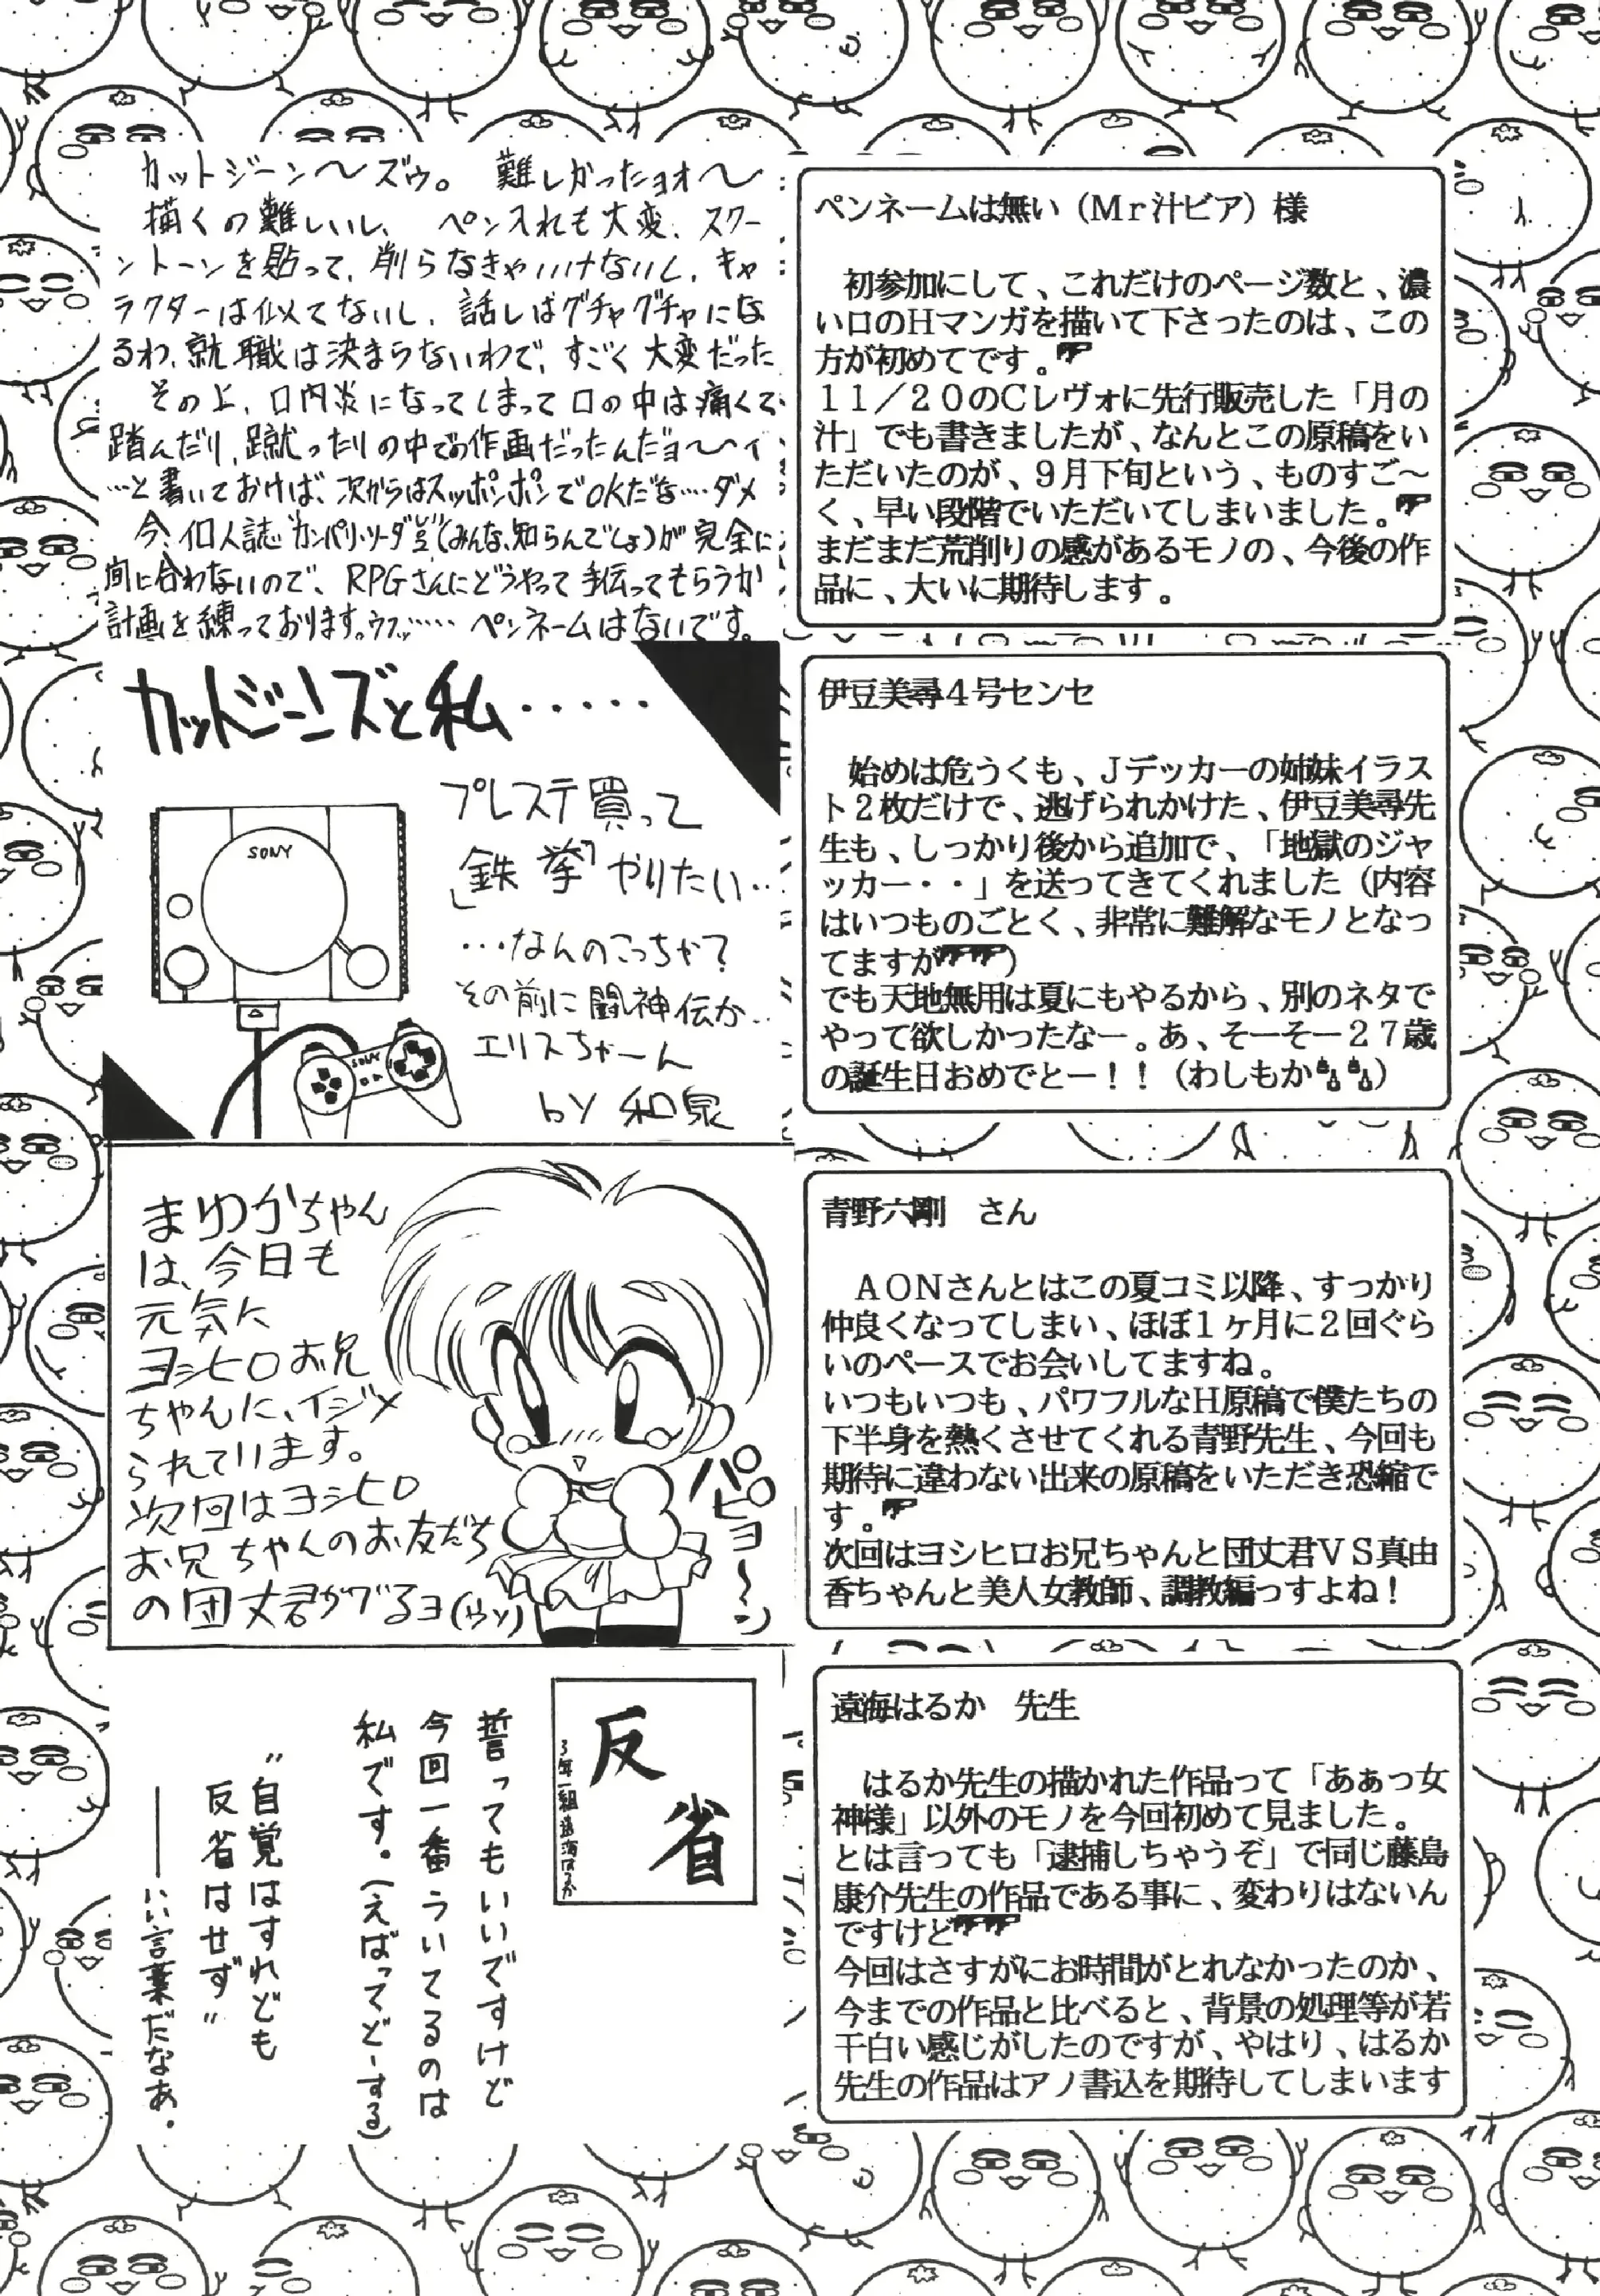 カットジーン〜ズゥ。 難しかったョオ〜
描くの難しいし、ペン入れも大変、スクー
ントーンを貼って、削らなきゃいけないし、キャ
ラクターは似てないし、話しはグチャグチャにな
るわ、就職は決まらないわで、すごく大変だった
その上、口内炎になってしまって口の中は痛くて
踏んだり、蹴ったりの中での作画だったんだョ〜〜イ
…と書いておけば、次からはスッポンポンでOKだな…・ダメ
今、個人誌“カンパリ・ソーダ”(みんな、知らんでしょ)が完全に
間に合わないので、RPGさんにどうやって手伝ってもらうか
計画を練っております。ウフッ…… ペンネームはないです。
ペンネームは無い(Mr汁ビア)様
初参加にして、これだけのページ数と、濃
い口のHマンガを描いて下さったのは、この
方が初めてです。
11/20のCレヴォに先行販売した「月の
汁」でも書きましたが、なんとこの原稿をい
ただいたのが、9月下旬という、ものすご〜
く、早い段階でいただいてしまいました。
まだまだ荒削りの感があるモノの、今後の作
品に、大いに期待します。
カットジーンズと私・・・・・
プレステ買って
「鉄拳」やりたい‥
…なんのこっちゃ?
その前に闘神伝か‥
エリスちゃーん
by 和泉
SONY
SONY
伊豆美尋4号センセ
始めは危うくも、Jデッカーの姉妹イラス
ト2枚だけで、逃げられかけた、伊豆美尋先
生も、しっかり後から追加で、「地獄のジャ
ッカー・・」を送ってきてくれました(内容
はいつものごとく、非常に難解なモノとなっ
てますが)
でも天地無用は夏にもやるから、別のネタで
やって欲しかったなー。あ、そーそー27歳
の誕生日おめでとー!!(わしもか)
まゆかちゃん
は、今日も
元気に
ヨシヒロお兄
ちゃんに、イジメ
られています。
次回はヨシヒロ
お兄ちゃんのお友だち
の団丈君がでるヨ(ウソ)
パピョ〜〜ン
青野六剛 さん
AONさんとはこの夏コミ以降、すっかり
仲良くなってしまい、ほぼ1ヶ月に2回ぐら
いのペースでお会いしてますね。
いつもいつも、パワフルなH原稿で僕たちの
下半身を熱くさせてくれる青野先生、今回も
期待に違わない出来の原稿をいただき恐縮で
す。
次回はヨシヒロお兄ちゃんと団丈君VS真由
香ちゃんと美人女教師、調教編っすよね!
反省
3年一組遠海はるか
誓ってもいいですけど
今回一番ういてるのは
私です。(えばってどーする)
“自覚はすれども
反省はせず”
――いい言葉だなあ.
遠海はるか 先生
はるか先生の描かれた作品って「あぁっ女
神様」以外のモノを今回初めて見ました。
とは言っても「逮捕しちゃうぞ」で同じ藤島
康介先生の作品である事に、変わりはないん
ですけど
今回はさすがにお時間がとれなかったのか、
今までの作品と比べると、背景の処理等が若
干白い感じがしたのですが、やはり、はるか
先生の作品はアノ書込を期待してしまいます